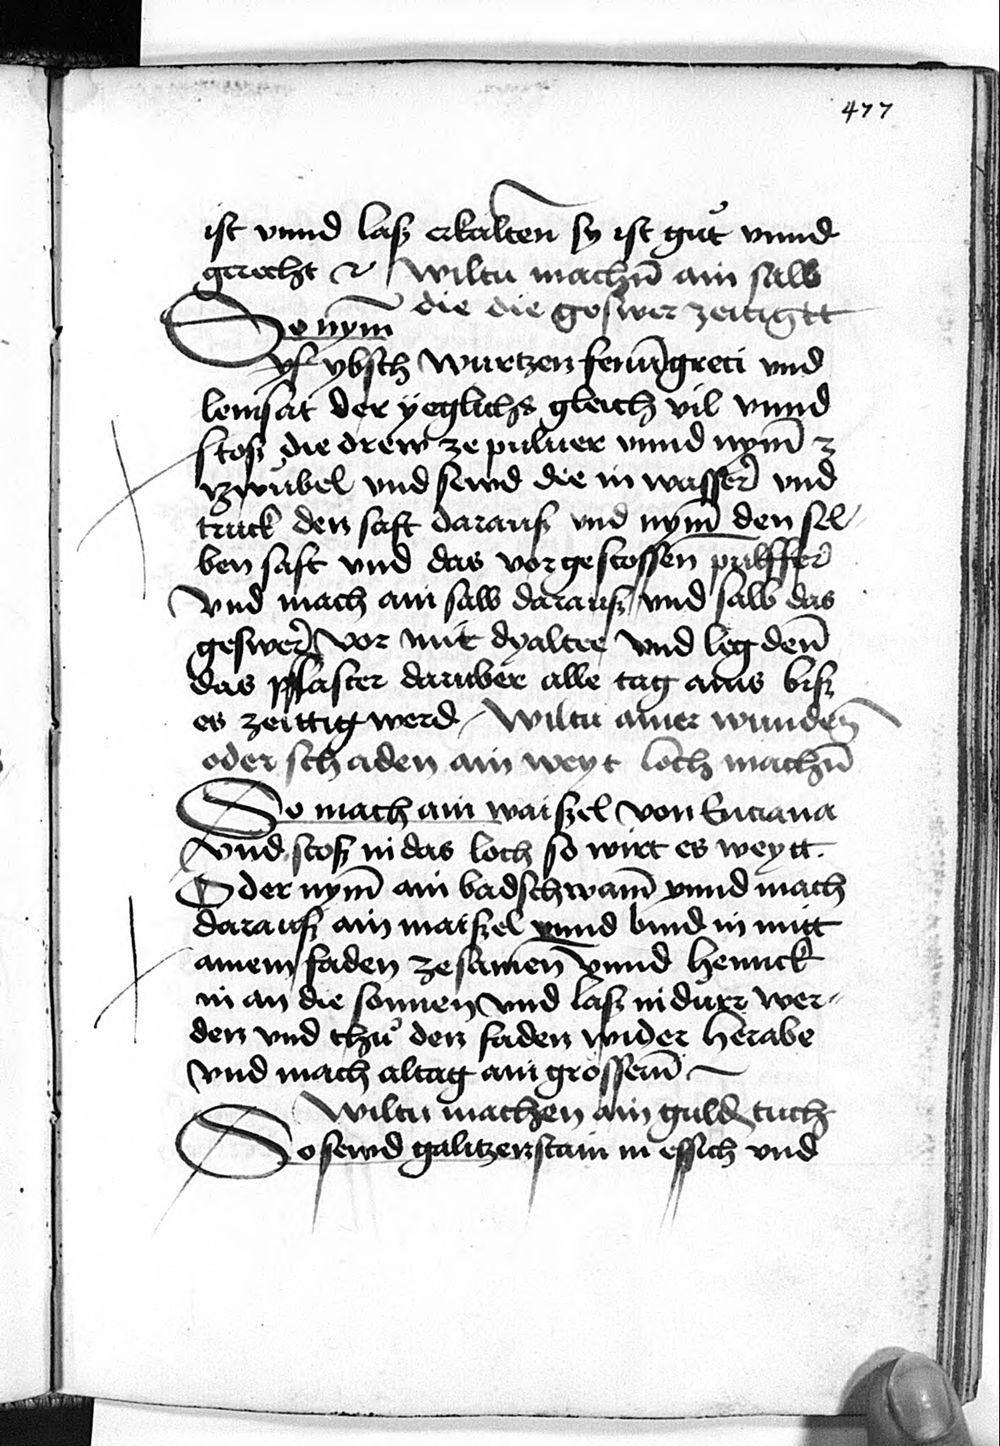 477
ist vnnd lasz erkalten sy ist guͦt vnnd
gerecht ꝛc Wiltu machn̄ ain salb
die die geswer zeitigtt
So nym
yf ybsch wurtzen fenūgreci vnd
leinsat der yeglichs gleich vil vnnd
stosz die drew ze puluer vnnd nym̄ z
zwúbel vnd sewd die in wasser vnd
truck den saft darausz vnd nym̄ den sel-
ben saft vnd das vorgestossen pulffer
Vnd mach ain salb darausz vnd salb das
geswer vor mit dyaltee vnd leg den̄
das pflaster daruber alle tag ains bisz
es zeittig werd Wiltu ainer wunden
oder schaden ain weyt loch machn̄
So mach ain waiszel von Enciana
Vnd stosz in das loch so wirt es weytt.
Oder nym̄ ain badschwam̄ vnnd mach
darausz ain maiszel vnnd bind in mitt
ainem faden zesamen vnnd henck
in an die sonnen vnd lasz in dúrr wer-
den vnd thuͦ den faden wider herabe
Vnd mach altag ain grossern̄
Wiltu machen ain guld tuch
So sewd galitzenstain in essich vnd